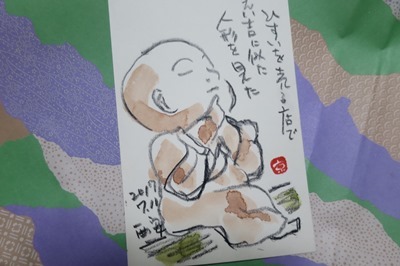 ひすいを売る店で
えい吉に似た
人形を見た
2017
7.11